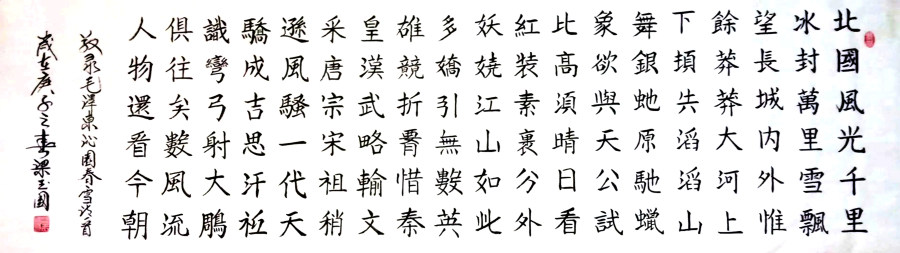 北國風光千里
冰封萬里雪飄
望長城内外惟
餘莽莽大河上
下頃失滔滔山
舞銀虵原馳蠟
象欲與天公試
比高須晴日看
紅裝素裹分外
妖嬈江山如此
多嬌引無數英
雄競折腰惜秦
皇漢武略輸文
采唐宗宋祖稍
遜風騷一代天
驕成吉思汗祗
識彎弓射大鵰
俱往矣數風流
人物還看今朝
敬录毛澤東沁園春雪詩首
歲在庚子之春梁玉國